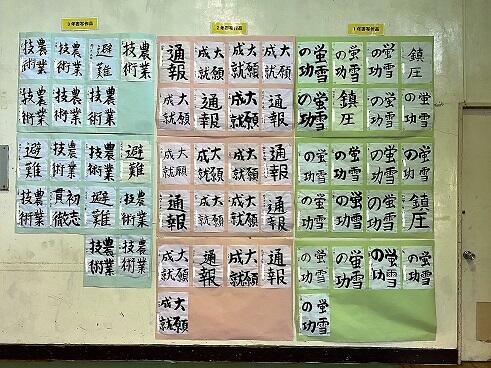 3年書写作品
農業技術
農業技術
避難
農業技術
農業技術
農業技術
農業技術
避難
農業技術
農業技術
避難
避難
初志貫徹
避難
農業技術
農業技術
農業技術
2年書写作品
通報
大願成就
通報
大願成就
大願成就
通報
大願成就
通報
大願成就
大願成就
大願成就
通報
通報
大願成就
大願成就
通報
大願成就
通報
大願成就
通報
大願成就
1年書写作品
蛍雪の功
蛍雪の功
蛍雪の功
鎮圧
蛍雪の功
鎮圧
蛍雪の功
蛍雪の功
蛍雪の功
蛍雪の功
蛍雪の功
蛍雪の功
蛍雪の功
蛍雪の功
蛍雪の功
鎮圧
蛍雪の功
蛍雪の功
蛍雪の功
蛍雪の功
蛍雪の功